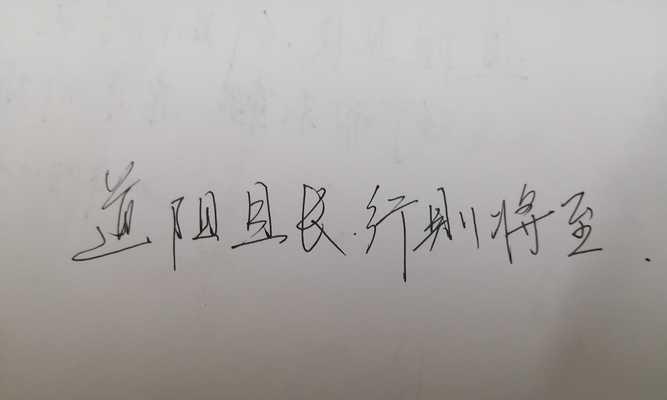 道阻且长.行则将至.